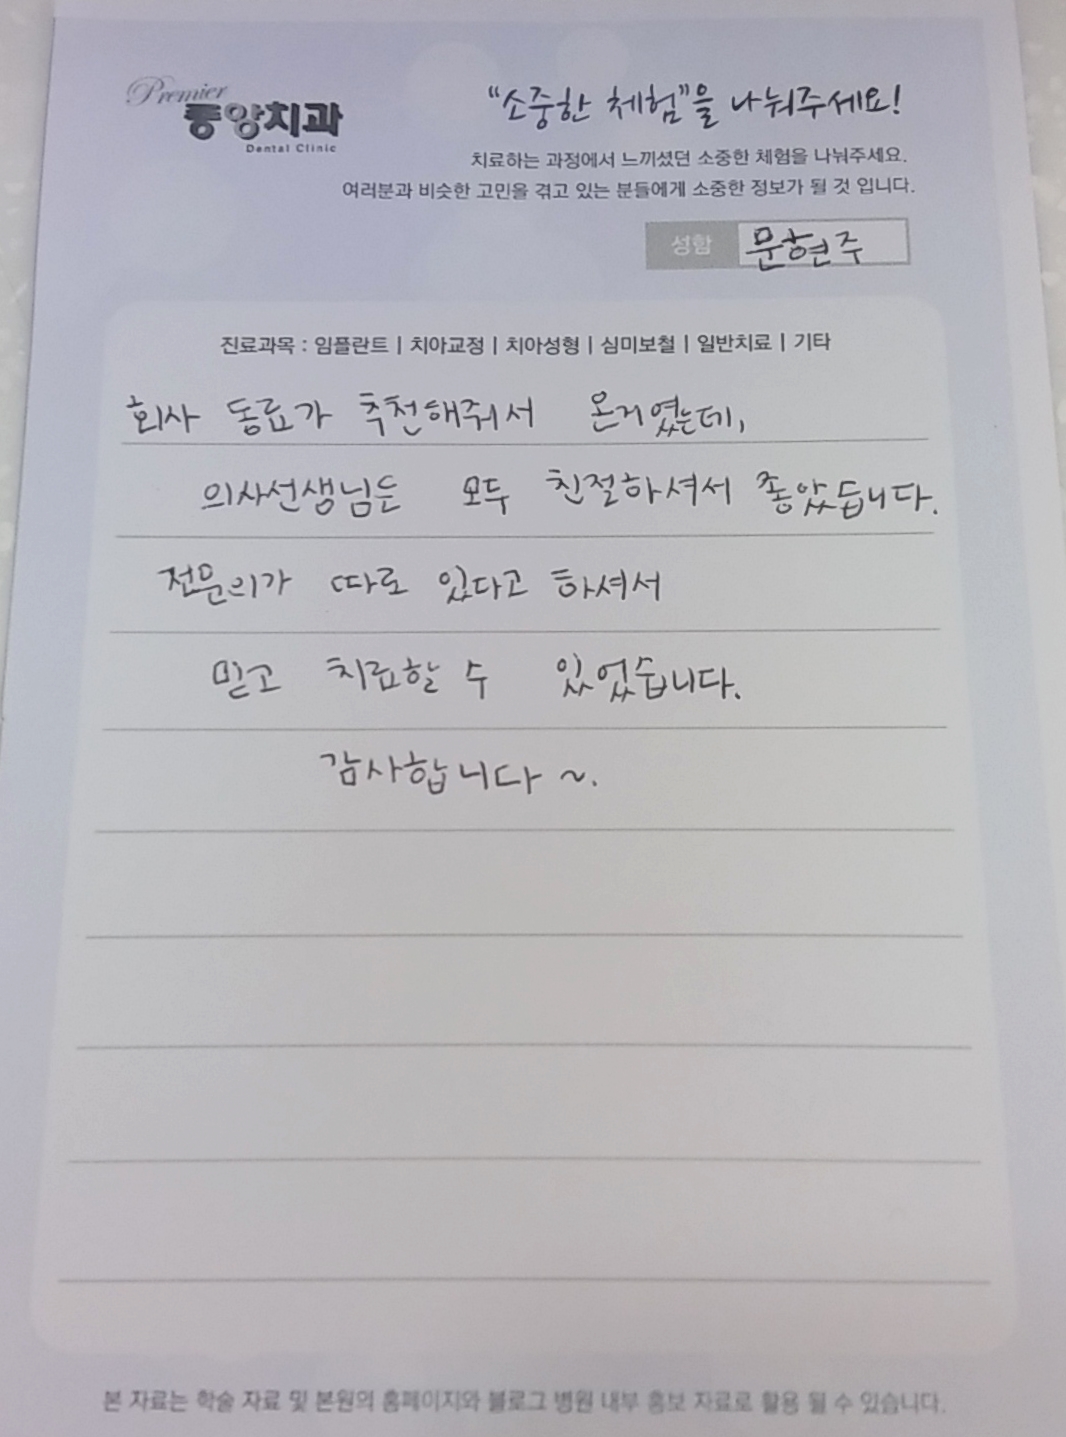 Premier
중앙치과
Dental Clinic
"소중한 체험"을 나눠주세요!
치료하는 과정에서 느끼셨던 소중한 체험을 나눠주세요.
여러분과 비슷한 고민을 겪고 있는 분들에게 소중한 정보가 될 것 입니다.
성함 문현주
진료과목 : 임플란트 | 치아교정 | 치아성형 | 심미보철 | 일반치료 | 기타
회사 동료가 추천해줘서 온거였는데,
의사선생님들 모두 친절하셔서 좋았습니다.
전문의가 따로 있다고 하셔서
믿고 치료할 수 있었습니다.
감사합니다 ~.
본 자료는 학술 자료 및 본원의 홈페이지와 블로그 병원 내부 홍보 자료로 활용 될 수 있습니다.